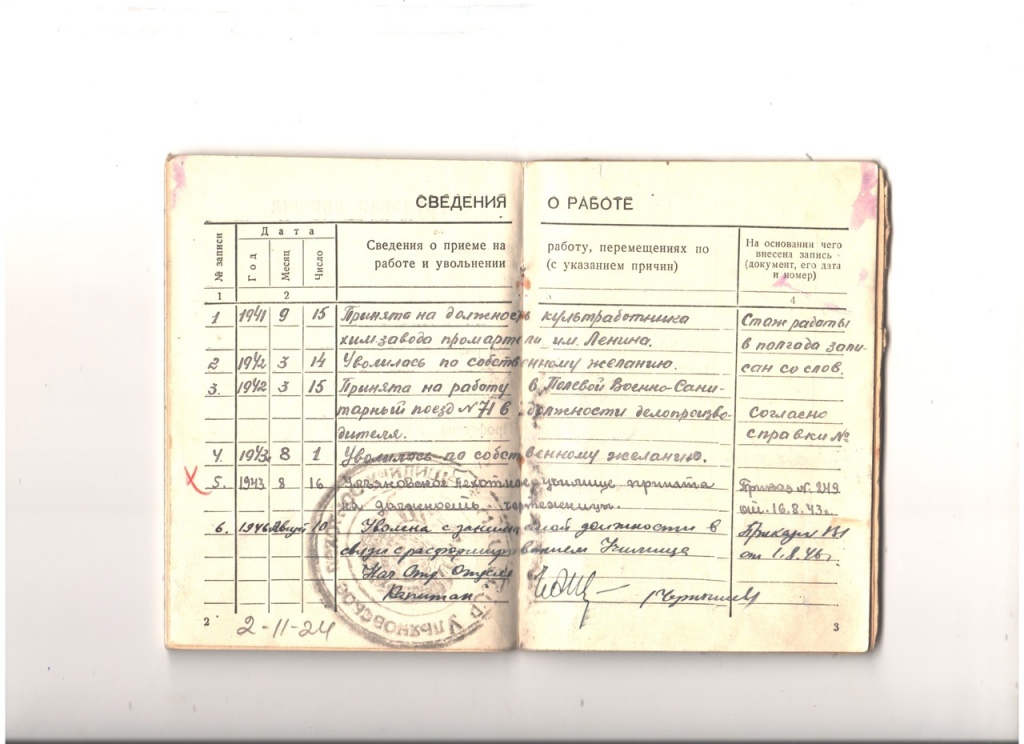 СВЕДЕНИЯ О РАБОТЕ
№ записи
Дата
Год
Месяц
Число
Сведения о приеме на работу, перемещениях по
работе и увольнении (с указанием причин)
На основании чего
внесена запись
(документ, его дата
и номер)
1 2 4
1 1941 9 15 Принята на должность культработника Стаж работы
химзавода промартели им. Ленина. в полгода запи-
2 1942 3 14 Уволилась по собственному желанию. сан со слов.
3. 1942 3 15 Принята на работу в Полевой Военно-Сани-
тарный поезд №71 в должности делопроизво- Согласно
дителя. справки №
4. 1943 8 1 Уволилась по собственному желанию.
5. 1943 8 16 Ульяновское Пехотное училище принята Приказ №. 249
на должность чертежницы. от. 16.8.43г.
6. 1946 Август 10 Уволена с занимаемой должности в Приказ
связи с расформированием Училища от 1.8.46г.
Нач Стр. Отдела
Капитан (Чернышев)
УЛЬЯНОВСКОЕ
2 2-11-24 3